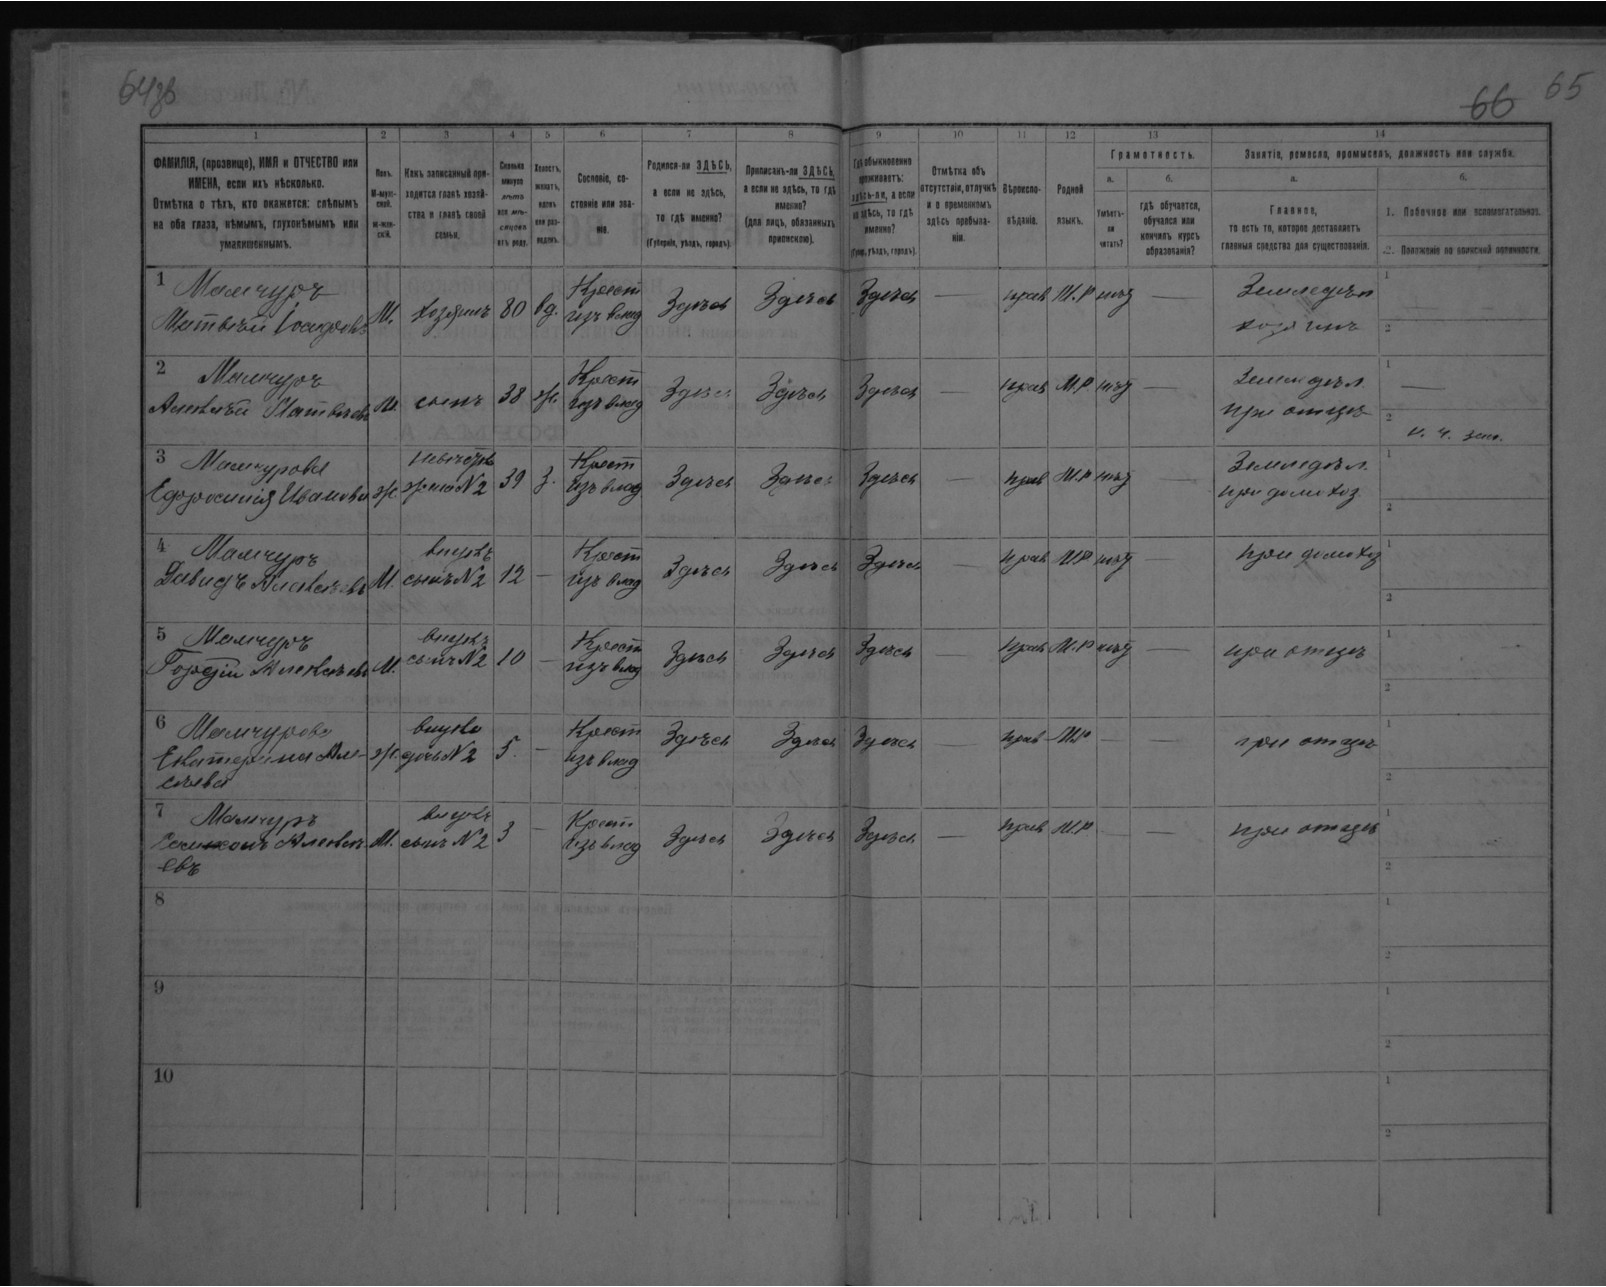 64об
66 65
1 2 3 4 5 6 7 8 9 10 11 12 13 14
ФАМИЛІЯ, (прозвище), ИМЯ и ОТЧЕСТВО или
ИМЕНА, если ихъ нѣсколько.
Отмѣтка о тѣхъ, кто окажется: слѣпымъ
на оба глаза, нѣмымъ, глухонѣмымъ или
умалишеннымъ.
Полъ.
М-муж-
ской.
Ж-жен-
скій.
Какъ записанный при-
ходится главѣ хозяй-
ства и главѣ своей
семьи.
Сколько
минуло
лѣтъ
или мѣ-
сяцевъ
отъ роду.
Холостъ,
женатъ,
вдовъ
или раз-
веденъ.
Сословіе, со-
стояніе или зва-
ніе.
Родился-ли ЗДѢСЬ,
а если не здѣсь,
то гдѣ именно?
(Губернія, уѣздъ, городъ).
Приписанъ-ли ЗДѢСЬ,
а если не здѣсь, то гдѣ
именно?
(для лицъ, обязанныхъ
припискою).
Гдѣ обыкновенно
проживаетъ:
здѣсь-ли, а если
не здѣсь, то гдѣ
именно?
(Губер., уѣздъ, городъ).
Отмѣтка объ
отсутствіи, отлучкѣ
и о временномъ
здѣсь пребыва-
ніи.
Вѣроиспо-
вѣданіе.
Родной
языкъ.
Грамотность.
а.
Умѣетъ-
ли
читать?
б.
гдѣ обучается,
обучался или
кончилъ курсъ
образованія?
Занятіе, ремесло, промыселъ, должность или служба.
а.
Главное,
то есть то, которое доставляетъ
главныя средства для существованія.
б.
1. Побочное или вспомогательное.
2. Положеніе по воинской повинности.
1 Мамчуръ
Матвѣй М. хозяинъ 80 вд. Крест изъ влад Здѣсь Здѣсь Здѣсь — прав М.Р нѣт — Земледѣл хозяинъ 1 2
2 Мамчуръ
Алексѣй Матвѣевъ М. сынъ 38 ж. Крест изъ влад Здѣсь Здѣсь Здѣсь прав М.Р нѣт — Земледѣл. при отцѣ 1 — 2
3 Мамчурова
Ивановна ж жена №2 39 з. Крест изъ влад Здѣсь Здѣсь Здѣсь — прав М.Р нѣт — Земледѣл. при хоз 1 2
4 Мамчуръ
Давидъ Алексѣевъ М. внукъ сынъ №2 12 — Крест изъ влад Здѣсь Здѣсь Здѣсь — прав М.Р нѣт — при хоз 1 2
5 Мамчуръ
Гордѣй Алексѣевъ М. внукъ сынъ №2 10 — Крест изъ влад Здѣсь Здѣсь Здѣсь — прав М.Р нѣт — при отцѣ 1 2
6 Мамчурова
Екатерина Але-
ксѣева ж. внука дочь №2 5 — Крест изъ влад Здѣсь Здѣсь Здѣсь — прав М.Р — — при отцѣ 1 2
7 Мамчуръ
Алексѣ-
евъ М. внукъ сынъ №2 3 — Крест изъ влад Здѣсь Здѣсь Здѣсь — прав М.Р — — при отцѣ 1 2
8 1 2
9 1 2
10 1 2